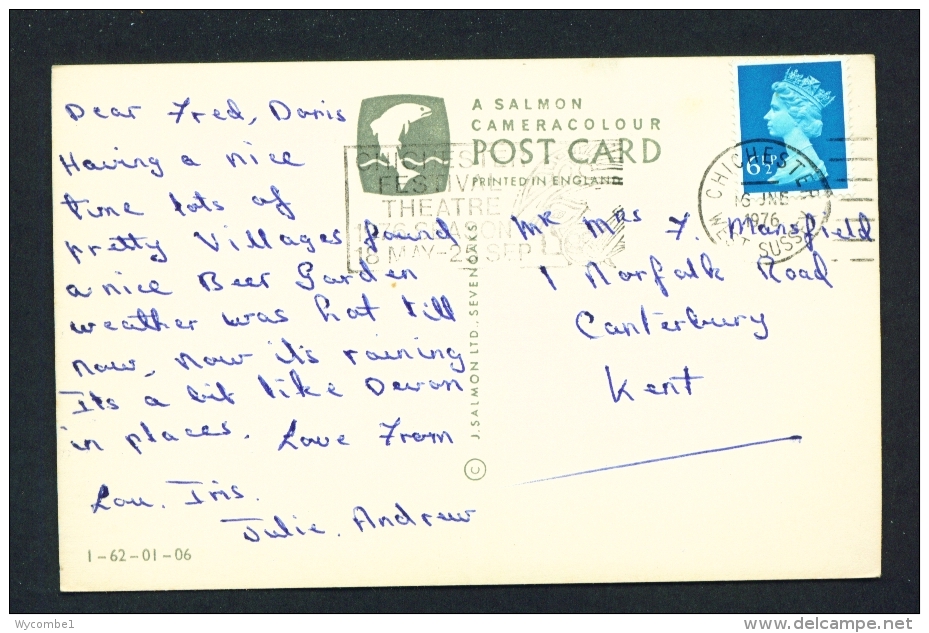 Dear Fred, Doris
Having a nice
time lots of
pretty Villages found
a nice Beer Garden
weather was hot till
now, now it's raining
Its a bit like Devon
in places. Love From
Lou. Iris.
Julie. Andrew
1-62-01-06
A SALMON
CAMERACOLOUR
POST CARD
PRINTED IN ENGLAND
CHICHESTER
FESTIVAL
THEATRE
SEASON
MAY-25 SEP
© J. SALMON LTD., SEVENOAKS
6½P
CHICHESTER
16 JNE
1976
WEST SUSSEX
Mr Mrs F. Mansfield
1 Norfolk Road
Canterbury
Kent
Wycombe1